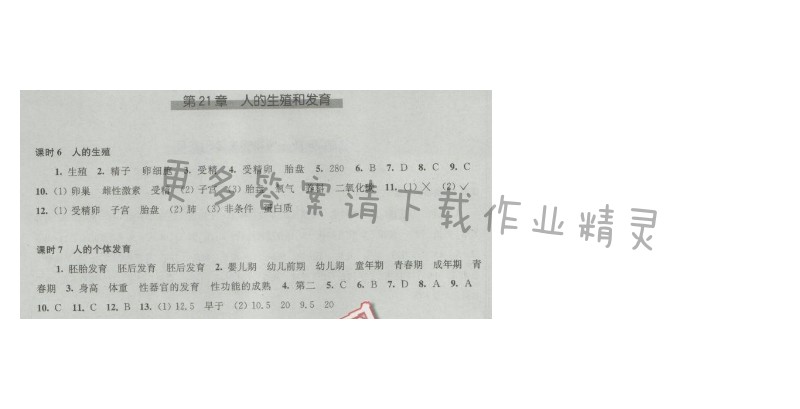 第21章 人的生殖和发育
课时6 人的生殖
1. 生殖 2. 精子 卵细胞 3. 受精 4. 受精卵 胎盘 5. 280 6. B 7. D 8. C 9. C
10. (1) 卵巢 雌性激素 受精 (2) 子宫 (3) 胎盘 氧气 二氧化碳 11. (1) × (2) ✓
12. (1) 受精卵 子宫 胎盘 (2) 肺 (3) 非条件 蛋白质
课时7 人的个体发育
1. 胚胎发育 胚后发育 胚后发育 2. 婴儿期 幼儿前期 幼儿期 童年期 青春期 成年期 青
春期 3. 身高 体重 性器官的发育 性功能的成熟 4. 第二 5. C 6. B 7. D 8. A 9. A
10. C 11. C 12. B 13. (1) 12.5 早于 (2) 10.5 20 9.5 20
更多答案请下载作业精灵